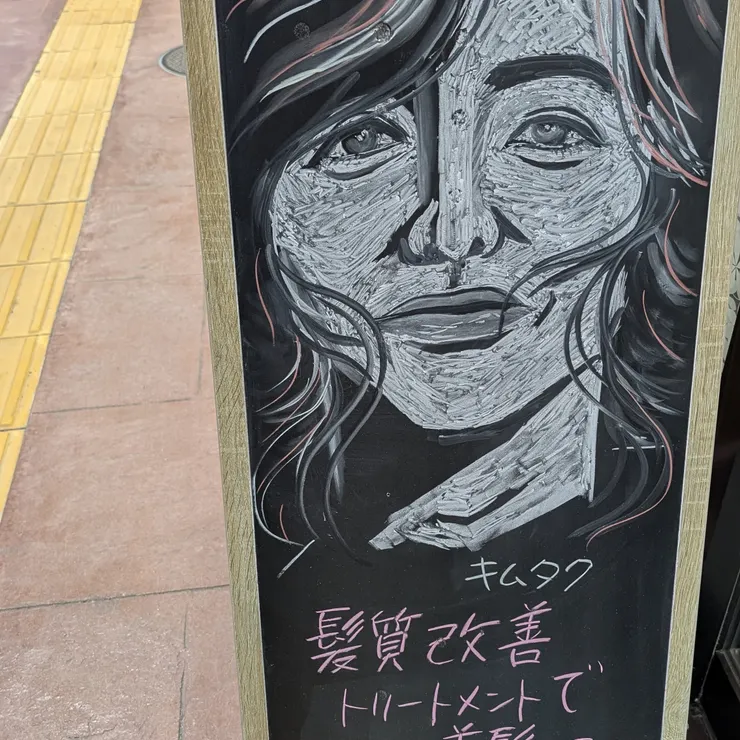 キムタク
髪質改善
トリートメントで